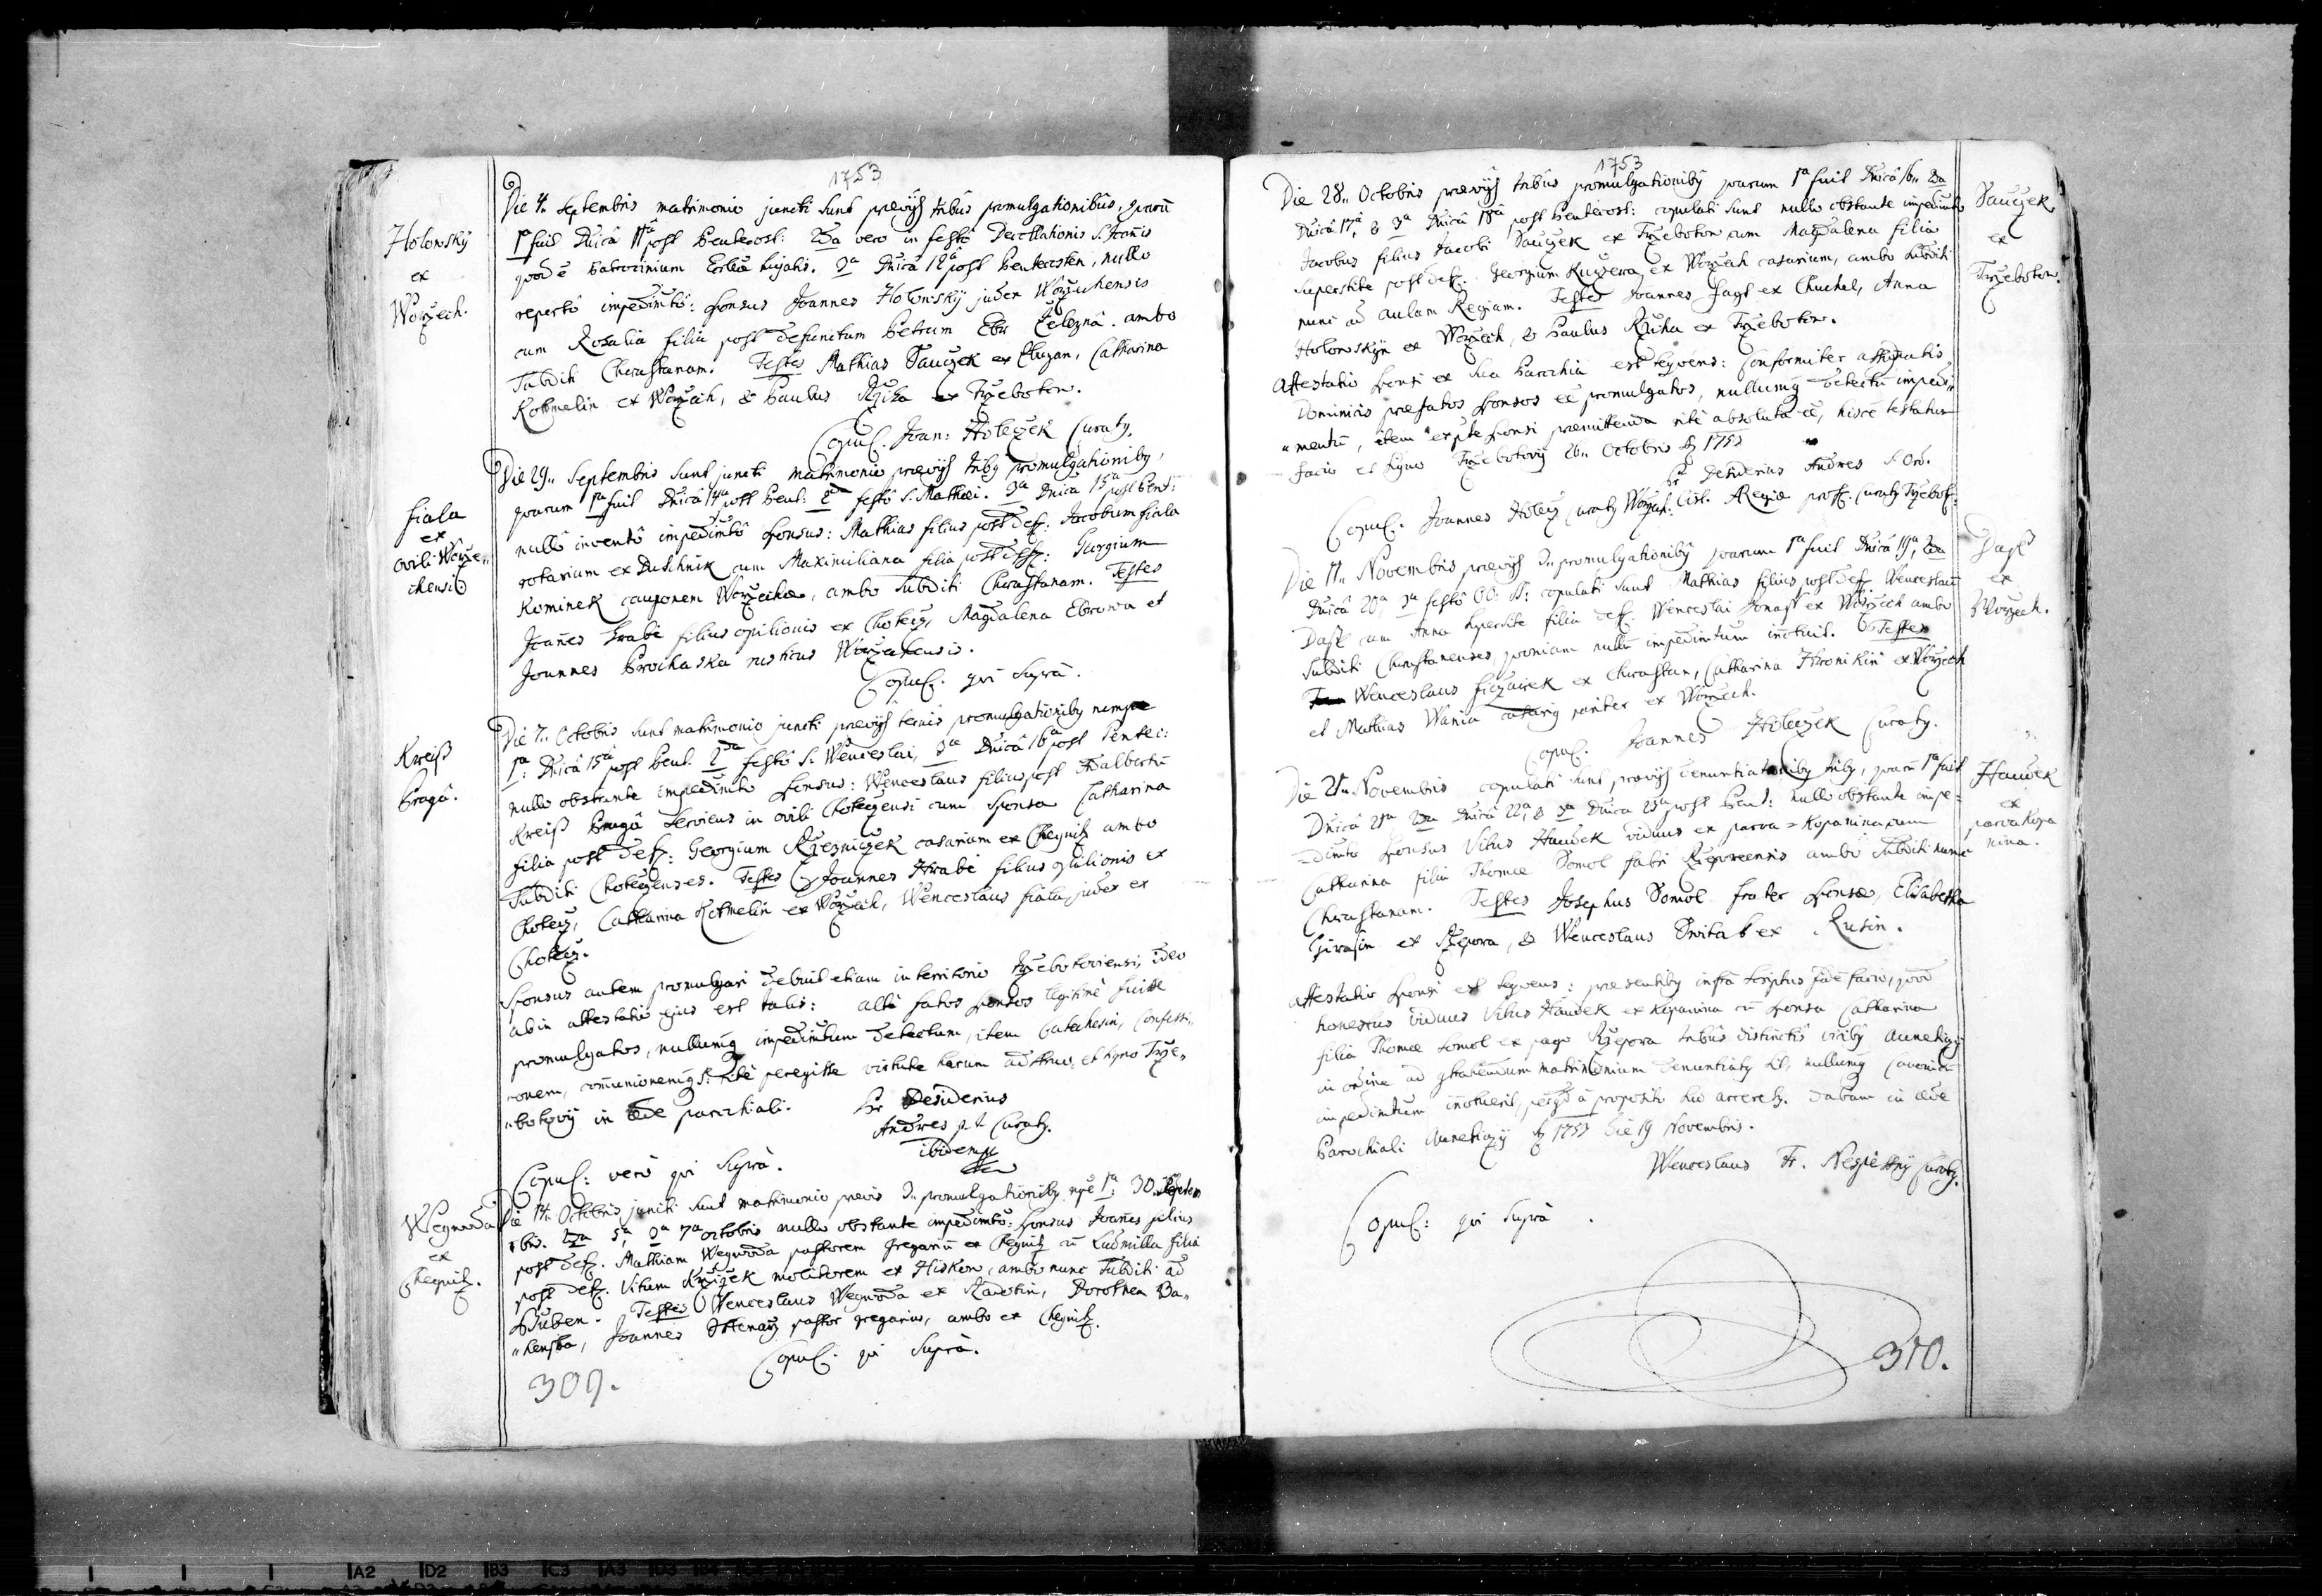 1753
Holowsky
ex
Worzech.
Die 4. Septembris matrimonio juncti sunt prævijs tribus promulgationibus, quarũ
1a fuit Dnicâ 11a post Pentecost: 2da vero in festô Decollationis S. Joañis
quod ẽ Patrocinium Ecclæ hujatis. 3a Dnicâ 12a post Pentecosten, nullo
repertô impedimtô: sponsus Joannes Holowskÿ judex Worzechensis
cum Rosalia filia post defunctum Petrum Ebr Železná. ambo
subditi Chrastanam. Testes Mathias Sauczek ex Sluzan, Catharina
Kotmelin ex Worzech, & Paulus Rziha ex Trzebotow.
Copul. Joan: Holeczek Curatq.
fiala
ex
ovili Worze„
chensi
Die 29. Septembris sunt juncti matrimonio prævijs tribq promulgationibq,
quarum 1a fuit Dnicâ 14a post Pent: 2da festô S. Mathæi. 3a Dnicâ 15a post Pent:
nullô inventô impedimtô sponsus: Mathias filius post def: Jacobum fiala
rotarium ex Duschnik cum Maximiliana filia post def: Gurgium
Kominek cauponem Worzechæ, ambo subditi Chrastanam. Testes
Joañes Hrabě filius opilionis ex Chotecz, Magdalena Ebrowa et
Joannes Prochaska rusticus Worzechensis.
Copul. qui Suprà.
Kreiß
Pragâ.
Die 7. Octobris sunt matrimonio juncti prævijs ternis promulgationibq nempe
1a: Dnicâ 15a post Pent. 2da festô S. Wenceslai, 3a Dnicâ 16a post Pentec:
nullo obstante impedimto sponsus: Wenceslaus filius post Adalbertũ
Kreiß Pragâ serviens in ovili Choteczensi cum sponsa Catharina
filia post def: Georgium Rzezniczek casarium ex Chegnitz ambo
subditi Choteczenses. Testes Joannes Hrabě filius opilionis ex
Chotecz, Catharina Kotmelin ex Worzech, Wenceslaus fiala judex ex
Chotecz.
Sponsus autem promulgari debuit etiam in territorio Trzebotoviensi, ideo
abin attestatio ejus est talis: allè fatos sponsos legitimè fuisse
promulgatos, nullumq impedimtum detectum, item Catechesin, Confessi„
onem, comunionemq S. rite peregisse virtute harum adstruo, et signo Trze„
„botovij in æde parochiali.
Fr Desiderius
Andres p t Curatq.
ibidem
Copul: verò qui Suprà.
Wegnoda
ex
Chegnitz.
Die 14. Octobris juncti sunt matrimonio previs 3. promulgationibq npe 1a: 30. Septem
bris. 2da 5a, 3a 7a octobris nullo obstante impedimtô: sponsus Joañes filius
post def. Mathiam Wegnoda pastorem gregariũ ex Chegnitz cũ Ludmilla filia
post def. Vitum Krzižek molitorem ex Hiskow, ambo nunc subditi ad
Stuben. Testes Wenceslaus Wegnoda ex Radotin, Dorothea Ba„
„henska, Joannes pastor gregarius, ambo ex Chegnitz.
Copul. qui Suprà.
309.
1753
Sauczek
ex
Trzebotow.
Die 28. Octobris prævijs tribus promulgationibq quarum 1a fuit Dnicâ 16. 2da
Dnicâ 17a, & 3a Dnicâ 18a post Pentecost: copulati sunt nullo obstante impedimto
Jacobus filius Jacobi Sauczek ex Trzebotow cum Magdalena filia
superstite post def: Georgium Kuczera ex Worzech casarium, ambo subditi
nunc ad Aulam Regiam. Testes Joannes fagt ex Chuchel, Anna
Holowskÿn ex Worzech, & Paulus Rziha ex Trzebotow.
Attestatio sponsi ex sua Parochia est seqvens: Conformiter assignatis
Dominicis præfatos sponsos eẽ promulgatos, nullumq detectũ impedi„
„mentũ, item ex pte sponsi præmittenda rite absoluta eẽ, hisce testatum
facio et signo Trzebotovij 26. Octobris A 1753
Fr Desiderius Andres S. Ord.
Cist. A Regiæ prof. Curatq Trzebot.
Copul. Joannes Holecz Curatq Worzech.
Dasst
ex
Worzech.
Die 11. Novembris prævijs 3. promulgationibq quarum 1a fuit Dnicâ 19a, 2da
Dnicâ 20a 3a festô OO: SS: copulati sunt Mathias filius post def. Wenceslaũ
Dasst cum Anna superstite filia def. Wenceslai Jonass ex Worzech ambo
subditi Chrastanenses, quoniam nullũ impedimtum inotuit. Testes
Wenceslaus ficzairek ex Chrastan, Catharina Hronikin ex Worzech
et Mathias Wania pariter ex Worzech.
Copul. Joannes Holeczek Curatq.
Hawek
ex
parva Kopa
nina.
Die 25. Novembris copulati sunt prævijs denuntiationibq tribq, quarũ 1a fuit
Dnicâ 21a 2da Dnicâ 22a, & 3a Dnica 23a post Pent: nullo obstante impe=
=dimto sponsus Vitus Hawek viduus ex parva=Kopanina cum
Catharina filia Thomæ Somol fabri Rzeporensis ambo subditi nunc
Chrastanam. Testes Josephus Somol frater sponsæ, Elisabetha
Girasin ex Rzepora, & Wenceslaus Switak ex Rusin.
Attestatio sponsi est seqvens: præsentibq infra scriptus fidẽ facio, quod
honestus viduus Vitus Hawek ex Kopanina cũ sponsa Catharina
filia Thomæ Somol ex pago Rzepora tribus distinctis vicibq Auneticzij
in ordine ad ghahendum matrimonium denuntiatq sit, nullumq Canonicũ
impedimtum iñotuerit, à proposito suo arceretq. Dabam in æde
Parochiali Auneticzij A 1753 die 19 Novembris.
Wenceslaus Fr. Nespiessnÿ Curatq.
Copul: qui Suprà.
310.